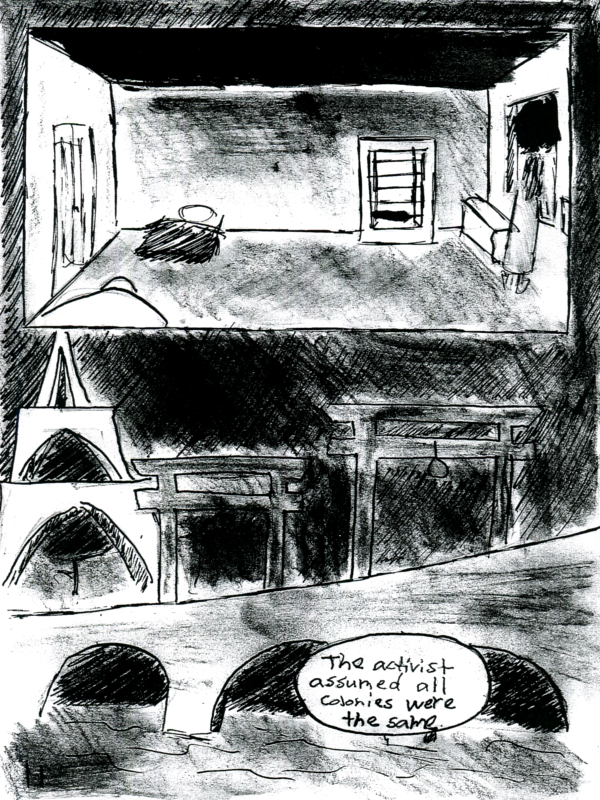 The activist
assumed all
colonies were
the same.